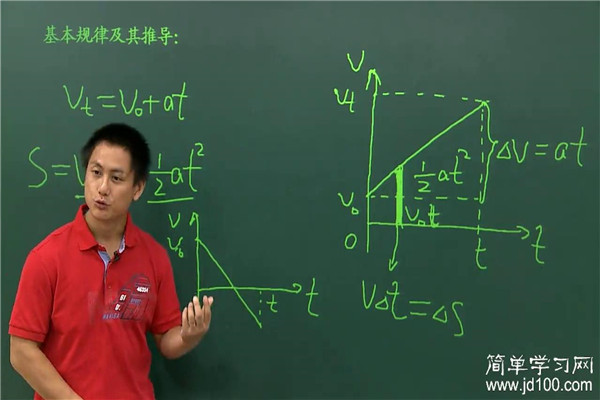 基本规律及其推导:
Vt=V₀+at
S=V
½at²
V
V₀
t
t
V
Vt
V₀
0
½at²
V₀t
ΔV=at
t
t
VΔt=ΔS
简单学习网
www.jd100.com